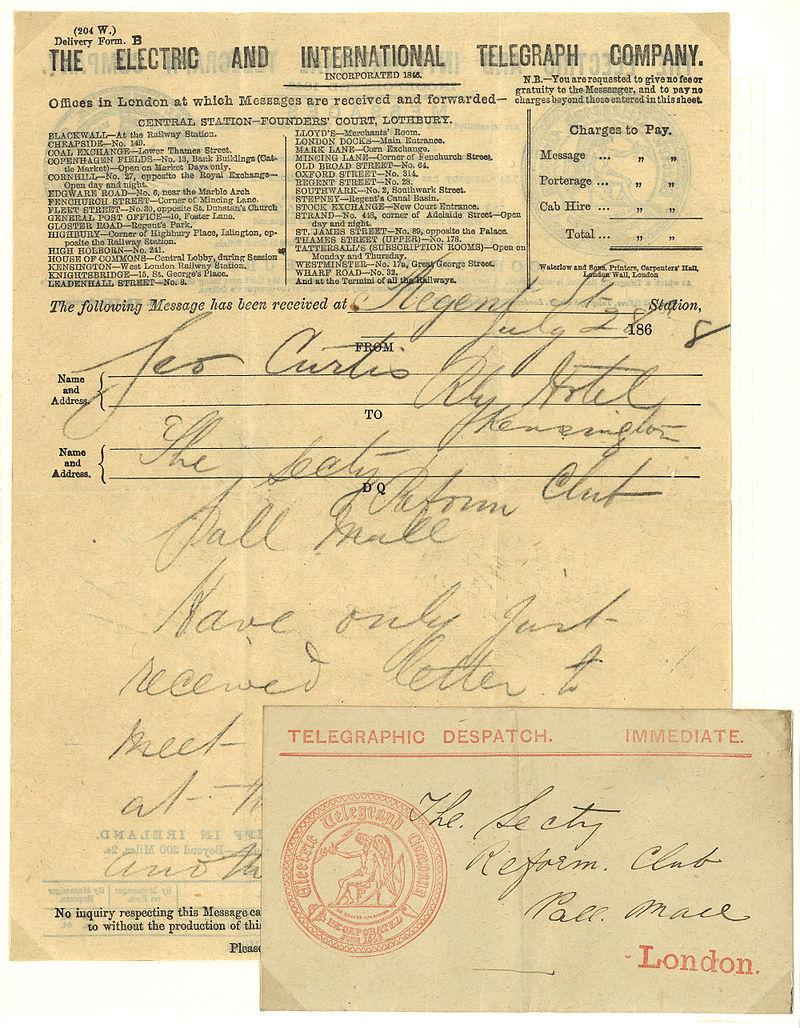 (204 W.)
Delivery Form. B
THE ELECTRIC AND INTERNATIONAL TELEGRAPH COMPANY.
INCORPORATED 1846.
Offices in London at which Messages are received and forwarded—
CENTRAL STATION—FOUNDERS' COURT, LOTHBURY.
BLACKWALL—At the Railway Station.
CHEAPSIDE—No. 149.
COAL EXCHANGE—Lower Thames Street.
COPENHAGEN FIELDS—No. 13, Bank Buildings (Cat-
tle Market)—Open on Market Days only.
CORNHILL—No. 27, opposite the Royal Exchange—
Open day and night.
EDGWARE ROAD—No. 6, near the Marble Arch
FENCHURCH STREET—Corner of Mincing Lane.
FLEET STREET—No. 30, opposite St. Dunstan's Church
GENERAL POST OFFICE—10, Foster Lane.
GLOSTER ROAD—Regent's Park.
HIGHBURY—Corner of Highbury Place, Islington, op-
posite the Railway Station.
HIGH HOLBORN—No. 241.
HOUSE OF COMMONS—Central Lobby, during Session
KENSINGTON—West London Railway Station.
KNIGHTSBRIDGE—15, St. George's Place.
LEADENHALL STREET—No. 8.
LLOYD'S—Merchants' Room.
LONDON DOCKS—Main Entrance.
MARK LANE—Corn Exchange.
MINCING LANE—Corner of Fenchurch Street.
OLD BROAD STREET—No. 64.
OXFORD STREET—No. 314.
REGENT STREET—No. 28.
SOUTHWARK—No. 2, Southwark Street.
STEPNEY—Regent's Canal Basin.
STOCK EXCHANGE—New Court Entrance.
STRAND—No. 448, corner of Adelaide Street—Open
day and night.
ST. JAMES' STREET—No. 89, opposite the Palace.
THAMES STREET (UPPER)—No. 178.
TATTERSALL'S (SUBSCRIPTION ROOMS)—Open on
Monday and Thursday.
WESTMINSTER—No. 17a, Great George Street.
WHARF ROAD—No. 32.
And at the Termini of all the Railways.
N.B.—You are requested to give no fee or
gratuity to the Messenger, and to pay no
charges beyond those entered in this sheet.
Charges to Pay.
Message ... „ „
Porterage ... „ „
Cab Hire ... „ „
Total ... „ „
Waterlow and Sons, Printers, Carpenters' Hall,
London Wall, London
The following Message has been received at Regent Station,
July 28 1868
FROM
Name and Address.
Geo Curtis Rly Hotel
Kensington
TO
Name and Address.
The Secty
DQ Reform Club
Pall Mall
Have only just
received letter to
meet
at
No inquiry respecting this Message ca
to without the production of this
Please
TELEGRAPHIC DESPATCH. IMMEDIATE.
Electric Telegraph Company
INCORPORATED
JUNE 1846
The Secty
Reform. Club
Pall. Mall
London.